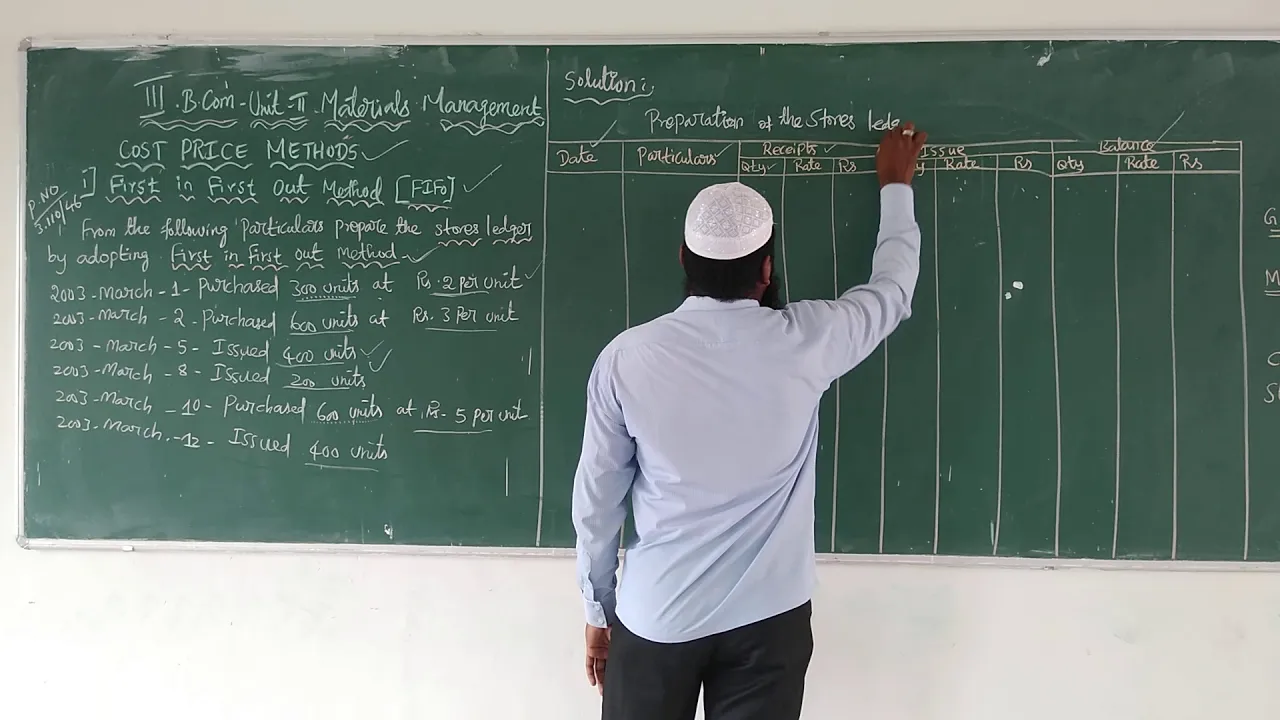 III . B.Com - Unit - II . Materials Management
COST PRICE METHODS
P.NO
3.110/46
i] First in First Out Method [FIFO]
From the following Particulars prepare the stores ledger
by adopting First in First out Method
2003 - March - 1 - Purchased 300 units at Rs. 2 per unit
2003 - March - 2 - Purchased 600 units at Rs. 3 Per unit
2003 - March - 5 - Issued 400 units
2003 - March - 8 - Issued 200 units
2003 - March - 10 - Purchased 600 units at Rs. 5 per unit
2003 - March - 12 - Issued 400 units
Solution :
Preparation of the Stores ledg
Date Particulars Receipts Issue Balance
Qty Rate Rs y Rate Rs Qty Rate Rs
G
M
C
S